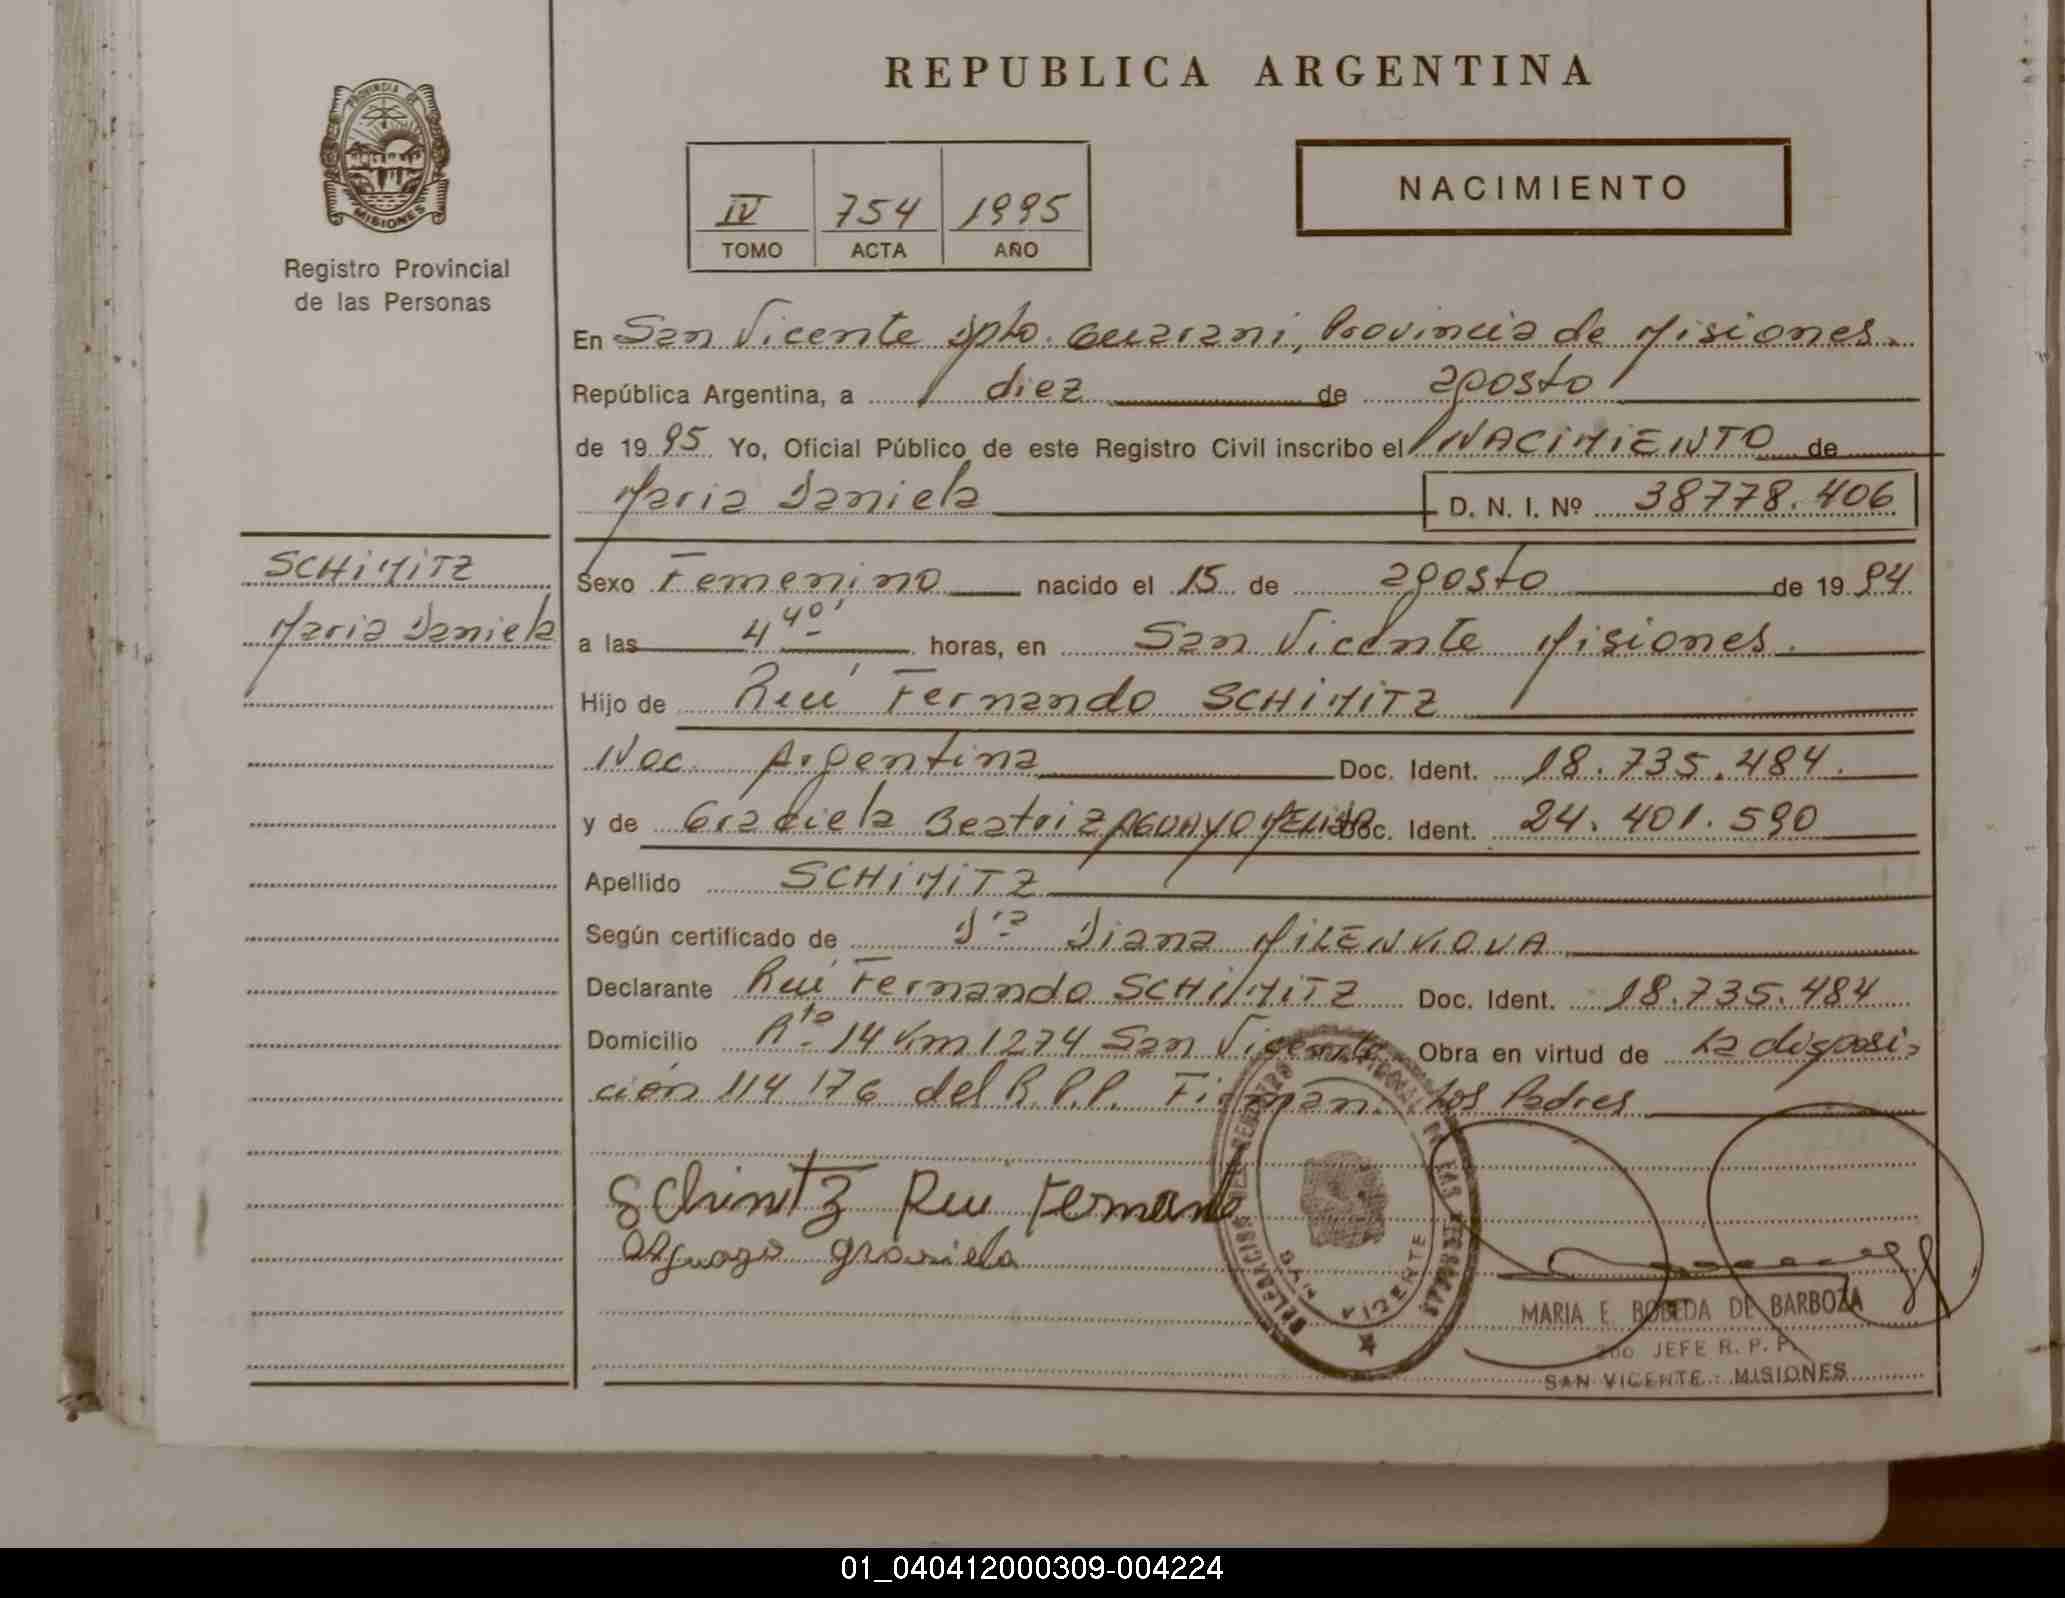 REPUBLICA ARGENTINA
PROVINCIA DE
MISIONES
Registro Provincial
de las Personas
IV 754 1995
TOMO ACTA AÑO
NACIMIENTO
En San Vicente Dpto. Guarani, Provincia de Misiones.
República Argentina, a diez de agosto
de 1995 Yo, Oficial Público de este Registro Civil inscribo el NACIMIENTO de
Maria Daniela D. N. I. Nº 38778.406
SCHIMITZ
Maria Daniela
Sexo Femenino nacido el 15 de agosto de 1994
a las 4 40' horas, en San Vicente Misiones.
Hijo de Rui Fernando SCHIMITZ
Nac. Argentina Doc. Ident. 18.735.484.
y de Graciela Beatriz AGUAYO Doc. Ident. 24.401.590
Apellido SCHIMITZ
Según certificado de Dra Diana
Declarante Rui Fernando SCHIMITZ Doc. Ident. 18.735.484
Domicilio Rta 14 Km 1274 San Vicente Obra en virtud de la disposi-
ción 114 176 del R.P.P. Firman. Los Padres
Schimitz Rui Fernando
Aguayo Grasiela
SAN VICENTE
MARIA E. BOBEDA DE BARBOZA
2do JEFE R. P. P.
SAN VICENTE - MISIONES
01_040412000309-004224